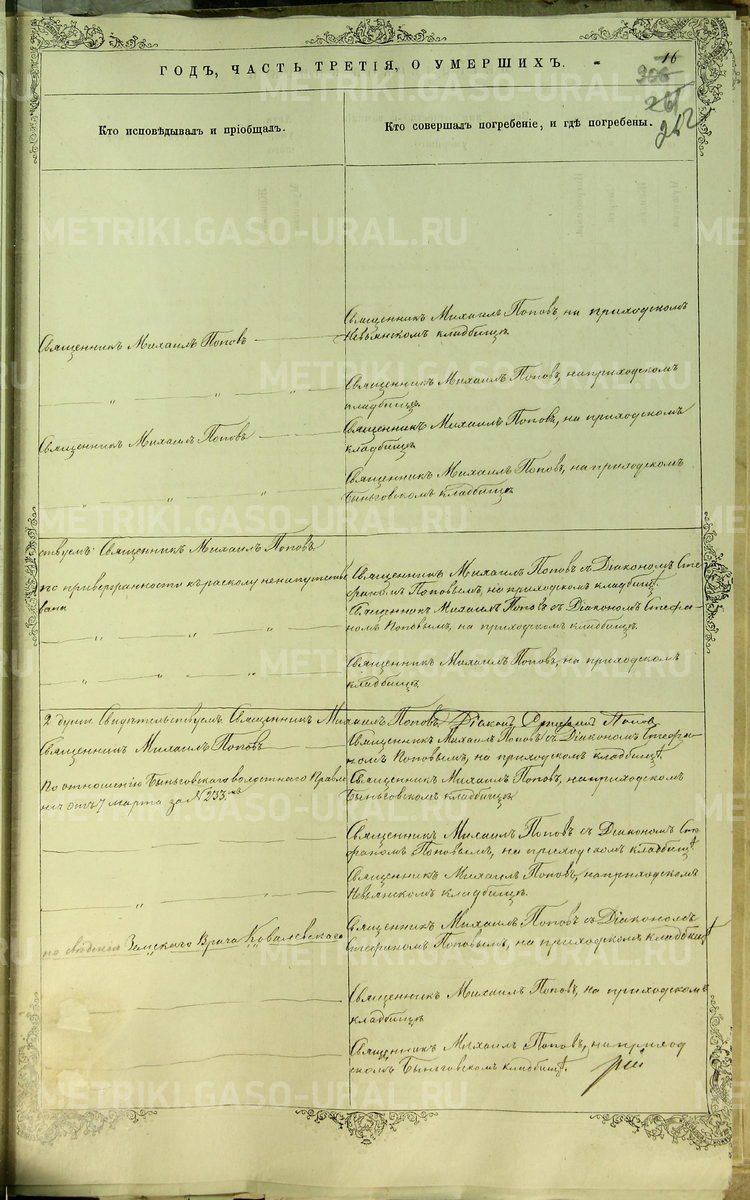 ГОДЪ, ЧАСТЬ ТРЕТІЯ, О УМЕРШИХЪ.
16
306
261
262
Кто исповѣдывалъ и пріобщалъ.
Кто совершалъ погребеніе, и гдѣ погребены.
METRIKI.GASO-URAL.RU
Священникъ Михаилъ Поповъ
Священникъ Михаилъ Поповъ, на приходскомъ
Невьянскомъ кладбищѣ.
Священникъ Михаилъ Поповъ, на приходскомъ
кладбищѣ.
Священникъ Михаилъ Поповъ
Священникъ Михаилъ Поповъ, на приходскомъ
кладбищѣ
Священникъ Михаилъ Поповъ, на приходскомъ
Быньговскомъ кладбищѣ
ствуемъ: Священникъ Михаилъ Поповъ
по приверженности къ расколу ненапутство
вана
Священникъ Михаилъ Поповъ съ Діакономъ Сте
фаномъ Поповымъ, на приходскомъ кладбищѣ
Священникъ Михаилъ Поповъ съ Діакономъ Стефа-
номъ Поповымъ, на приходскомъ кладбищѣ.
Священникъ Михаилъ Поповъ, на приходскомъ
кладбищѣ
2 души. Свидѣтельствуемъ: Священникъ Михаилъ Поповъ, Діаконъ Стефанъ Поповъ
Священникъ Михаилъ Поповъ
Священникъ Михаилъ Поповъ съ Діакономъ Стефа-
номъ Поповымъ, на приходскомъ кладбищѣ.
По отношенію Быньговскаго волостнаго Правле
нія отъ 7 марта за № 233.
Священникъ Михаилъ Поповъ, на приходскомъ
Быньговскомъ кладбищѣ
Священникъ Михаилъ Поповъ съ Діакономъ Сте
фаномъ Поповымъ, на приходскомъ кладбищѣ
Священникъ Михаилъ Поповъ, на приходскомъ
Невьянскомъ кладбищѣ.
по сведенію Земскаго Врача Ковалевскаго
Священникъ Михаилъ Поповъ съ Діакономъ
Стефаномъ Поповымъ, на приходскомъ кладбищѣ
Священникъ Михаилъ Поповъ, на приходскомъ
кладбищѣ
Священникъ Михаилъ Поповъ, на приход
скомъ Быньговскомъ кладбищѣ.